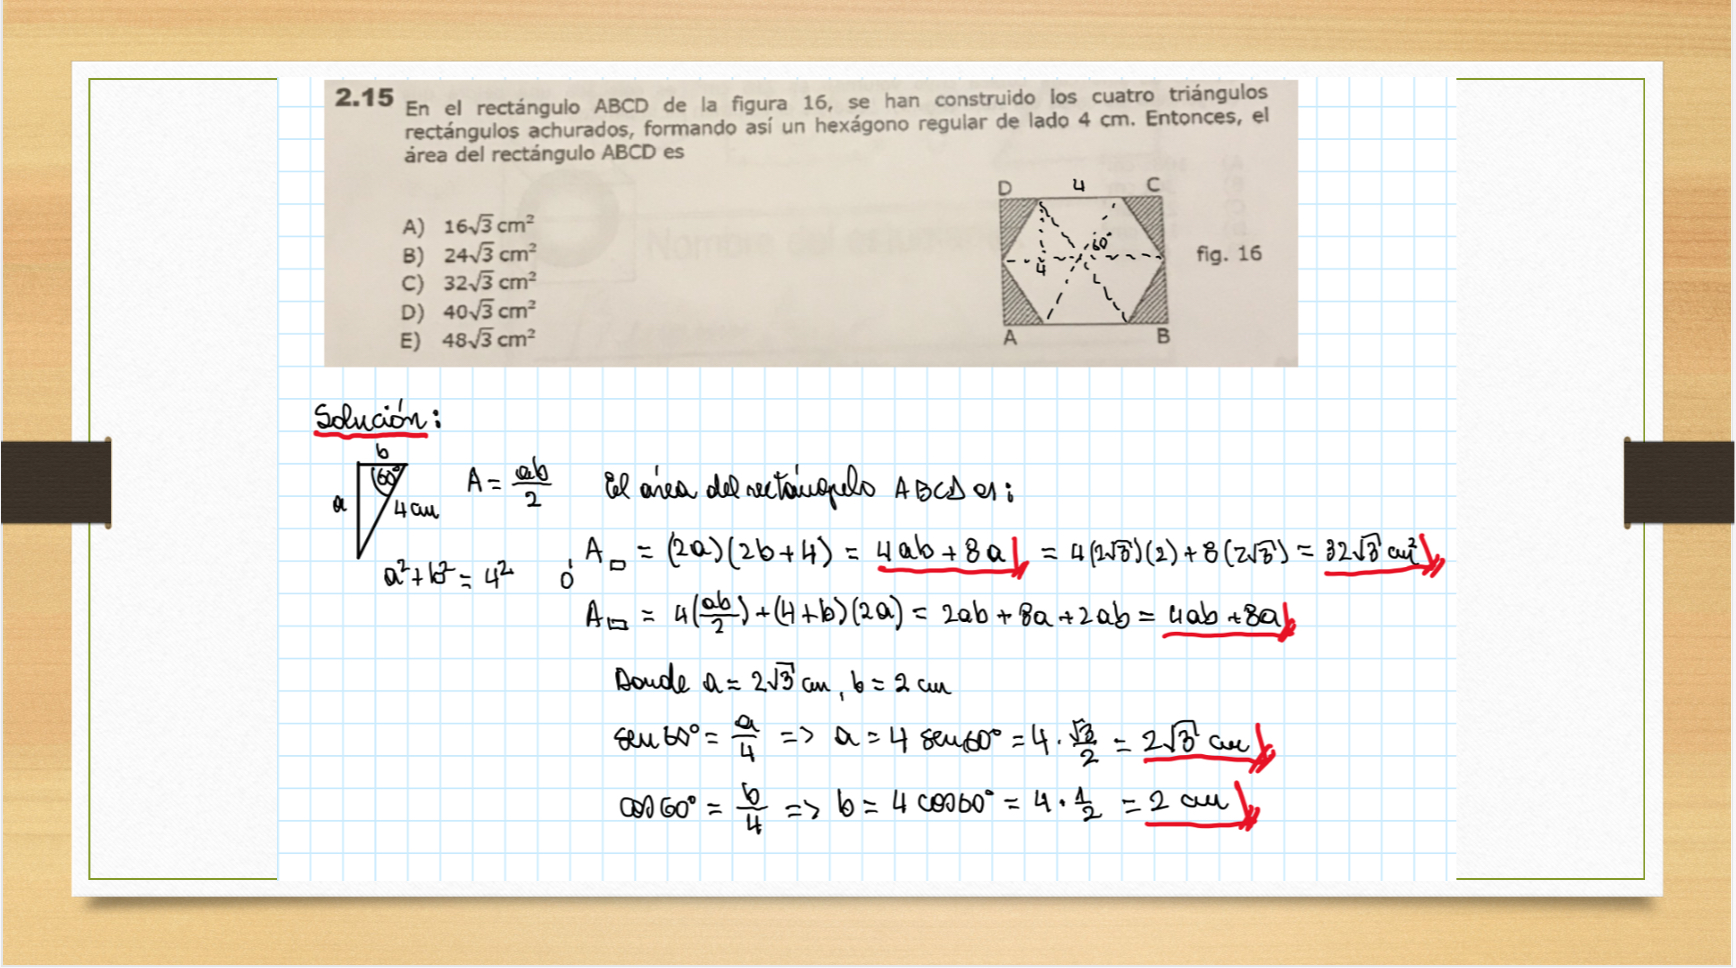 2.15 En el rectángulo ABCD de la figura 16, se han construido los cuatro triángulos
rectángulos achurados, formando así un hexágono regular de lado 4 cm. Entonces, el
área del rectángulo ABCD es
A) 16√3 cm²
B) 24√3 cm²
C) 32√3 cm²
D) 40√3 cm²
E) 48√3 cm²
D 4 C
60°
4
fig. 16
A B
Solución:
b
60°
a
4 cm
a² + b² = 4²
A = ab/2
El área del rectángulo ABCD es:
A▭ = (2a)(2b+4) = 4ab + 8a = 4(2√3)(2) + 8(2√3) = 32√3 cm²
ó
A▭ = 4(ab/2) + (4+b)(2a) = 2ab + 8a + 2ab = 4ab + 8a
Donde a = 2√3 cm, b = 2 cm
sen60° = a/4 => a = 4 sen60° = 4 · √3/2 = 2√3 cm
cos60° = b/4 => b = 4 cos60° = 4 · 1/2 = 2 cm